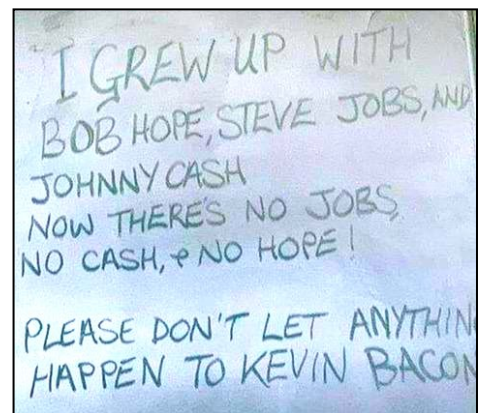 I GREW UP WITH
BOB HOPE, STEVE JOBS, AND
JOHNNY CASH
NOW THERE'S NO JOBS,
NO CASH, & NO HOPE!
PLEASE DON'T LET ANYTHIN
HAPPEN TO KEVIN BACON